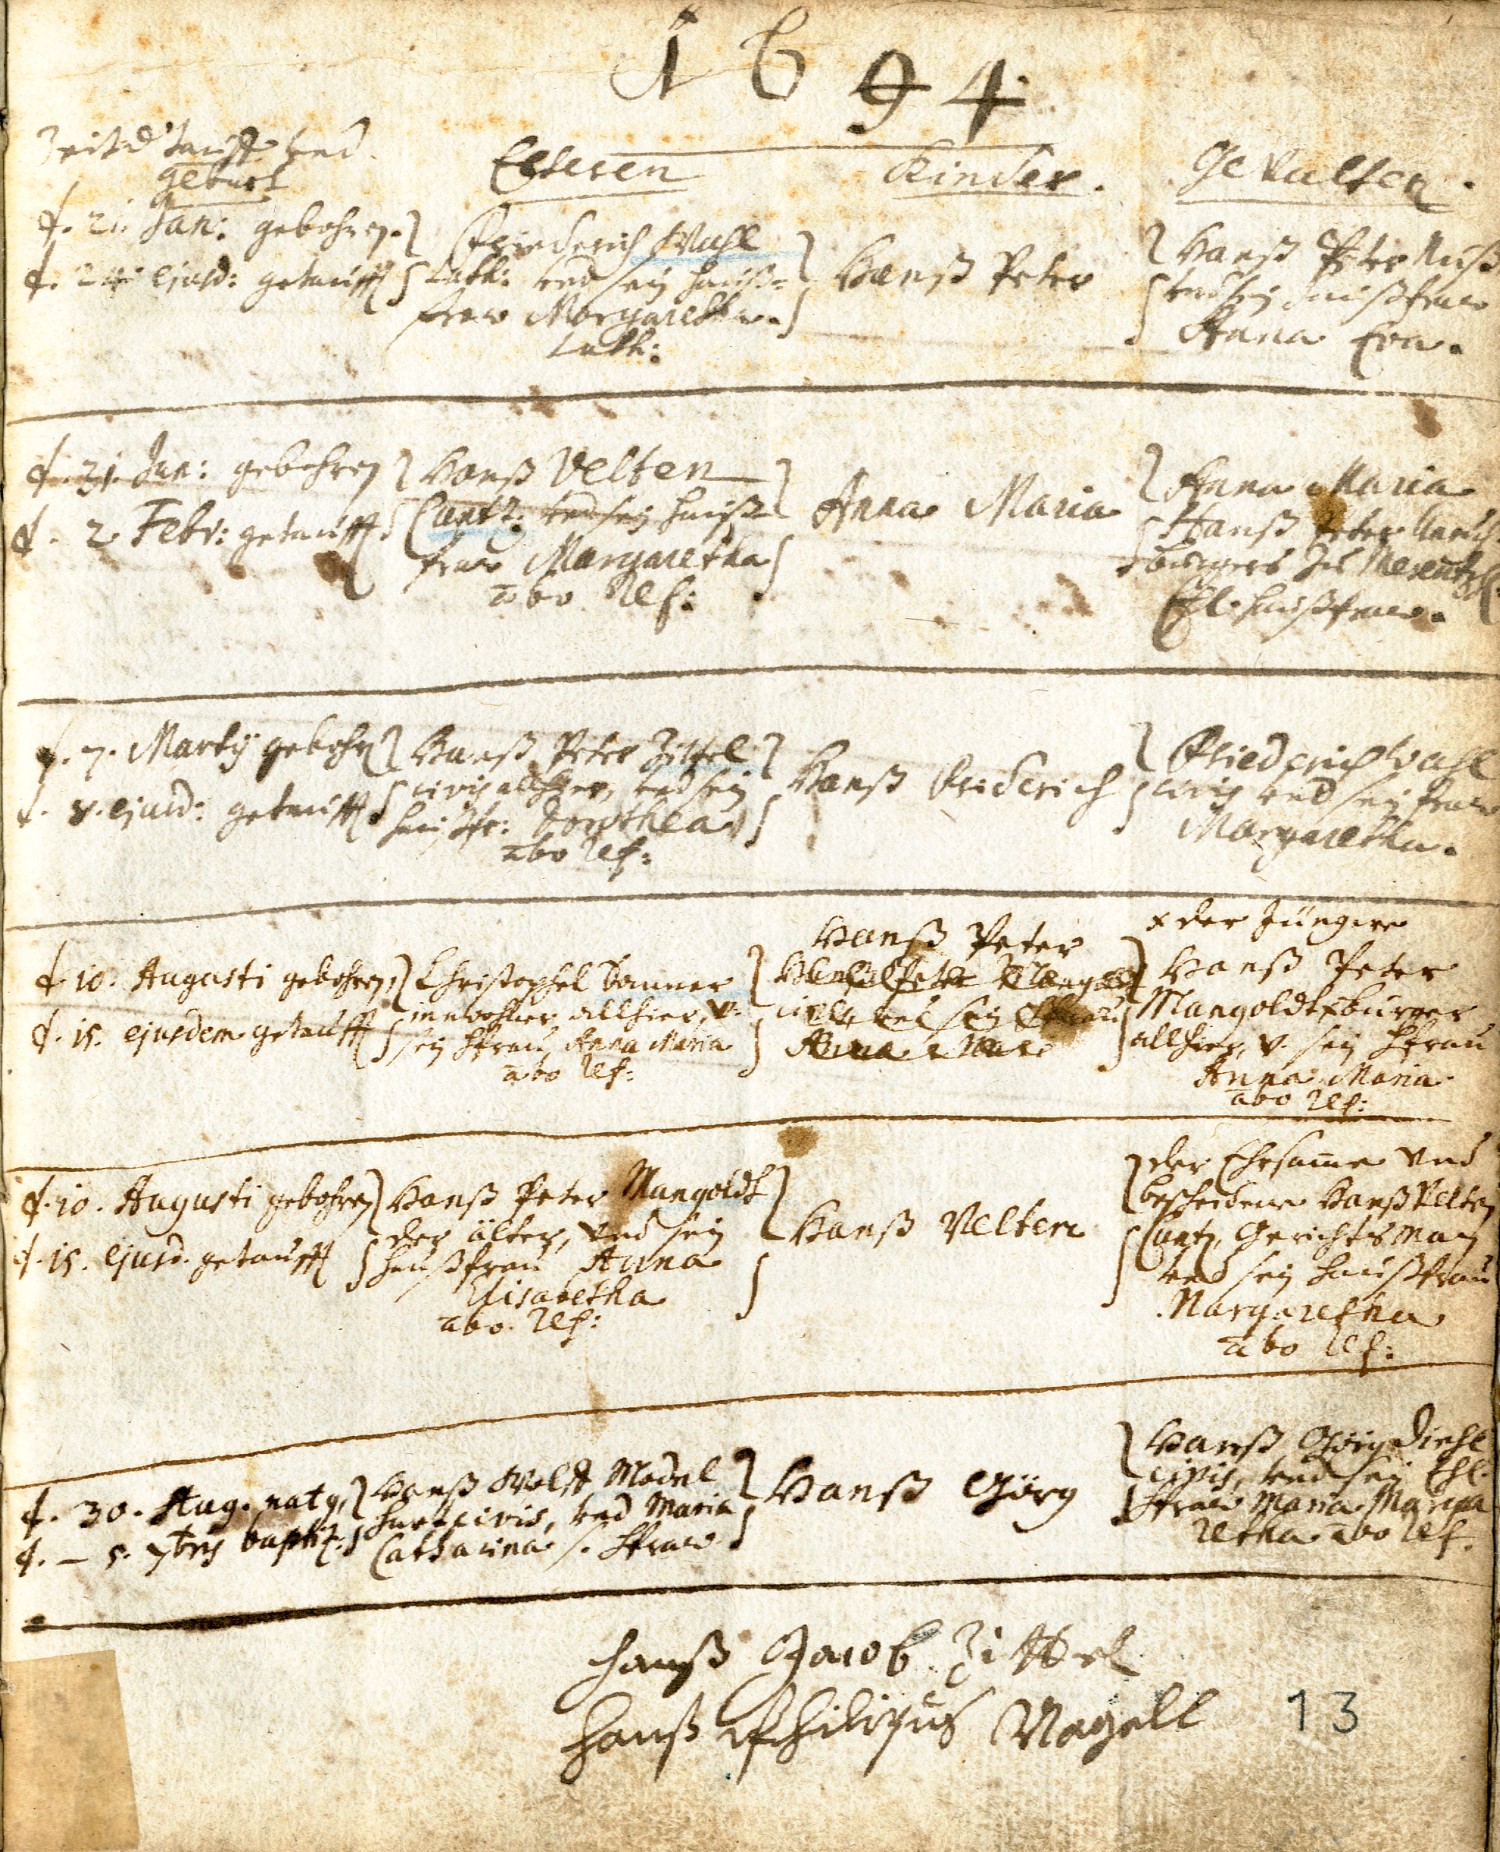 1694
Zeit d. Tauff und
geburt
Elteren
Kinder.
Gevatteren.
d. 21. Jan: gebohren.
d. 24. ejusd: getaufft
Friederich Wahl
Cath: und sein hauß-
fraw Margaretha.
Cath:
Hanß Peter
Hanß Peter Nuß
und sein haußfraw
Anna Eva.
d. 31. Jan: gebohren
d. 2. Febr: getaufft
Hanß Velten
Cantz: und sein hauß-
fraw Margaretha
abo Ref:
Anna Maria
Anna Maria
Hanß Peter
burgers zu
Ehl. haußfraw.
d. 7. Martij gebohrn
d. 8. ejusd: getaufft
Hanß Peter Zittel
civis allhier, und sein
haußfr: Dorothea
abo Ref:
Hanß Friderich
Friederich Wahl
civis und sein fraw
Margaretha.
d. 10. Augusti gebohren,
d. 15. ejusdem getaufft
Christophel Danner
inwohner allhier, v.
sein Hfrau Anna Maria
abo Ref:
Hanß Peter
Hanß Peter Mangold
civis und sein Hfrau
Anna Mari
x der Jüngere
Hanß Peter
Mangoldt burger
allhier, v. sein Hfrau
Anna Maria
abo Ref:
d. 10. Augusti gebohren
d. 15. Ejusd. getaufft
Hanß Peter Mangoldt
der älter, und sein
haußfrau Anna
Elisabetha
abo. Ref:
Hanß Velten
der Ehrsame und
bescheidene Hanß Velten
Cantz, Gerichtsman
und sein haußfrau
Margaretha
abo Ref:
d. 30. Aug. natus,
d. – 5. 7bris baptiz:
Hanß Wolff Model
civis, und Maria
Catharina s. Hfraw
Hanß Görg
Hanß Görg Diehl
civis, und sein Ehl.
Hfraw Maria Marga
retha abo Ref.
Hanß Jacob Zittel
Hanß Philipus Nagell
13